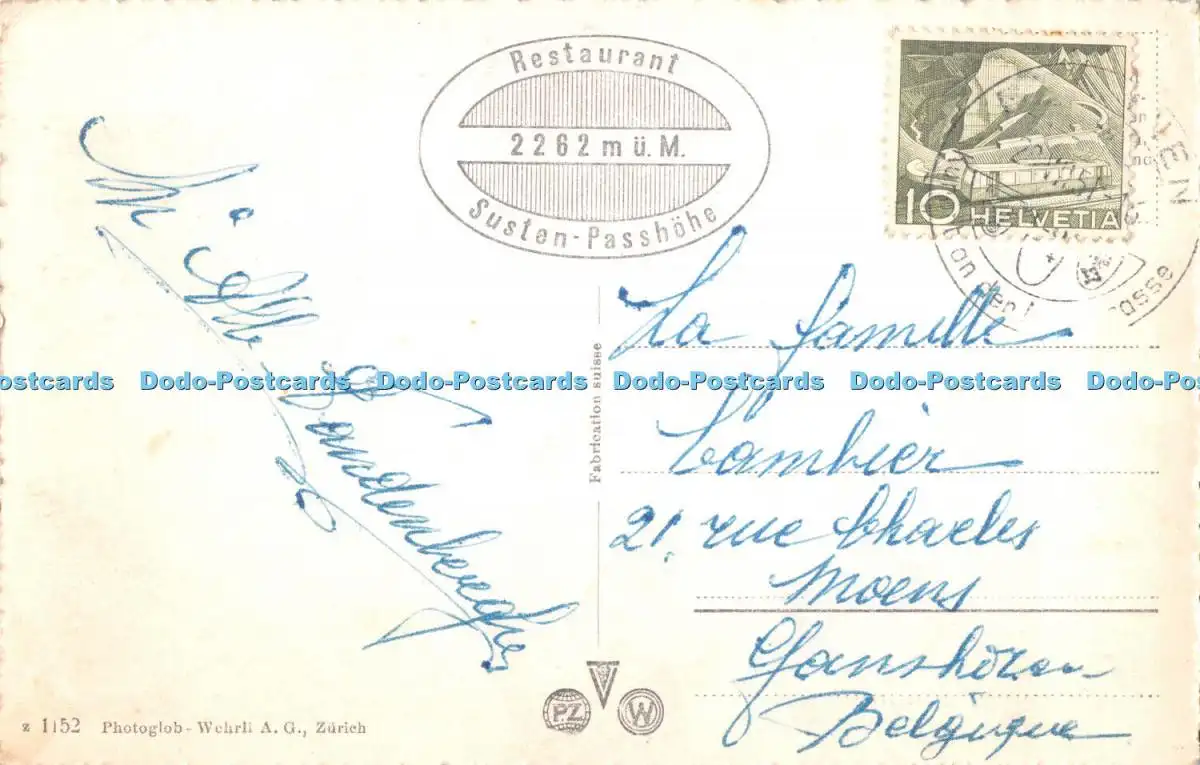 Restaurant
2262 m ü. M.
Susten-Passhöhe
10 HELVETIA
Vandenberghe
La famille
Cambier
21 rue Charles
Moens
Ganshoren
Belgique
Fabrication suisse
Dodo-Postcards Dodo-Postcards Dodo-Postcards Dodo-Postcards Dodo-Postcards
PZ W
z 1152 Photoglob-Wehrli A. G., Zürich